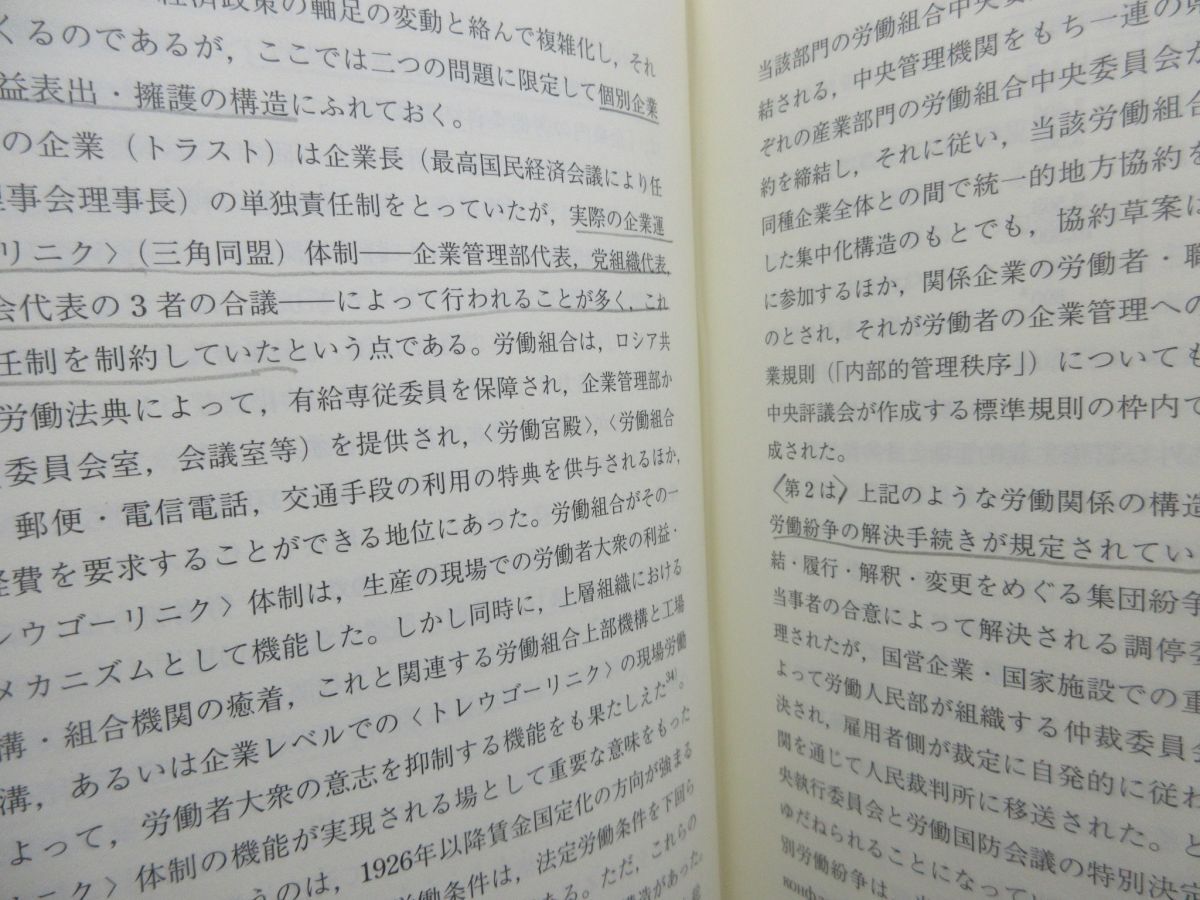 済政策の軸足の変動と絡んで複雑化し，それ
くるのであるが，ここでは二つの問題に限定して個別企業
益表出・擁護の構造にふれておく。
の企業（トラスト）は企業長（最高国民経済会議により任
理事会理事長）の単独責任制をとっていたが，実際の企業運
リニク〉（三角同盟）体制——企業管理部代表，党組織代表，
会代表の3者の合議——によって行われることが多く，これ
任制を制約していたという点である。労働組合は，ロシア共
労働法典によって，有給専従委員を保障され，企業管理部か
委員会室，会議室等）を提供され，〈労働宮殿〉，〈労働組合
郵便・電信電話，交通手段の利用の特典を供与されるほか，
経費を要求することができる地位にあった。労働組合がその一
レウゴーリニク〉体制は，生産の現場での労働者大衆の利益・
メカニズムとして機能した。しかし同時に，上層組織における
構・組合機関の癒着，これと関連する労働組合上部機構と工場
溝，あるいは企業レベルでの〈トレウゴーリニク〉の現場労働
よって，労働者大衆の意志を抑制する機能をも果たしえた34)。
ニク〉体制の機能が実現される場として重要な意味をもった
うのは，1926年以降賃金国定化の方向が強まる
労働条件は，法定労働条件を下回ら
ある。ただ，これらの
構造があった。
当該部門の労働組合中央委
結される，中央管理機関をもち一連の
ぞれの産業部門の労働組合中央委員会が
約を締結し，それに従い，当該労働組合
同種企業全体との間で統一的地方協約を
した集中化構造のもとでも，協約草案は
に参加するほか，関係企業の労働者・職
のとされ，それが労働者の企業管理への
業規則（「内部的管理秩序」）についても
中央評議会が作成する標準規則の枠内で
成された。
〈第2は〉上記のような労働関係の構造
労働紛争の解決手続きが規定されてい
結・履行・解釈・変更をめぐる集団紛争
当事者の合意によって解決される調停委
理されたが，国営企業・国家施設での重
よって労働人民部が組織する仲裁委員会
決され，雇用者側が裁定に自発的に従わ
関を通じて人民裁判所に移送された。と
央執行委員会と労働国防会議の特別決定
ゆだねられることになってい
別労働紛争は，
конф